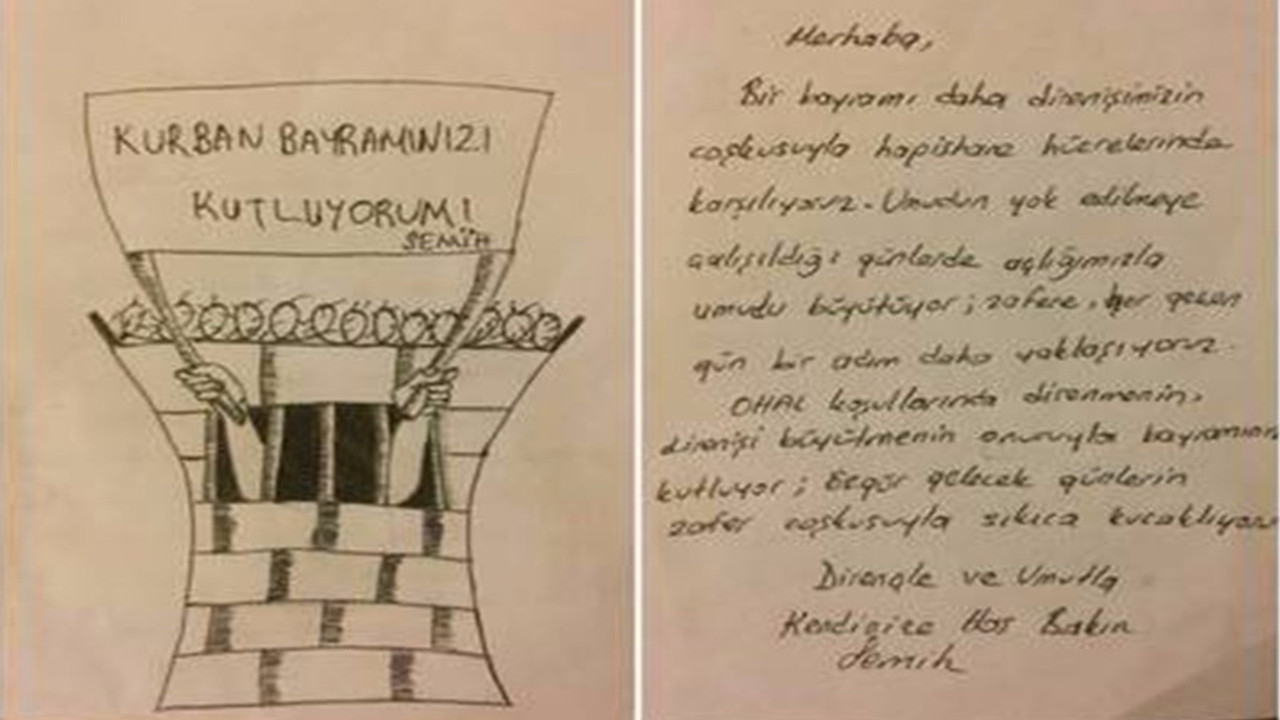 KURBAN BAYRAMINIZI
KUTLUYORUM!
SEMİH
Merhaba,
Bir bayramı daha direnişimizin
coşkusuyla hapishane hücrelerinde
karşılıyoruz. Umudun yok edilmeye
çalışıldığı günlerde açlığımızla
umudu büyütüyor; zafere, her geçen
gün bir adım daha yaklaşıyoruz.
OHAL koşullarında direnmenin,
direnişi büyütmenin onuruyla
kutluyor; özgür gelecek günlerin
zafer coşkusuyla sıkıca
Dirençle ve Umutla
Kendinize Hoş Bakın
Semih